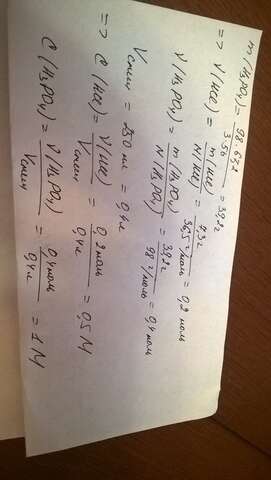 m (H₃PO₄) = 98·63,2 / 3·56 = 39,2г
=> ν (HCl) = m(HCl) / M(HCl) = 7,3г / 36,5 г/моль = 0,2 моль
ν (H₃PO₄) = m(H₃PO₄) / M(H₃PO₄) = 39,2г / 98 г/моль = 0,4 моль
Vсмеси = 250 мл = 0,4л
=> C (HCl) = ν(HCl) / Vсмеси = 0,2моль / 0,4л = 0,5 M
C (H₃PO₄) = ν (H₃PO₄) / Vсмеси = 0,4моль / 0,4л = 1 M